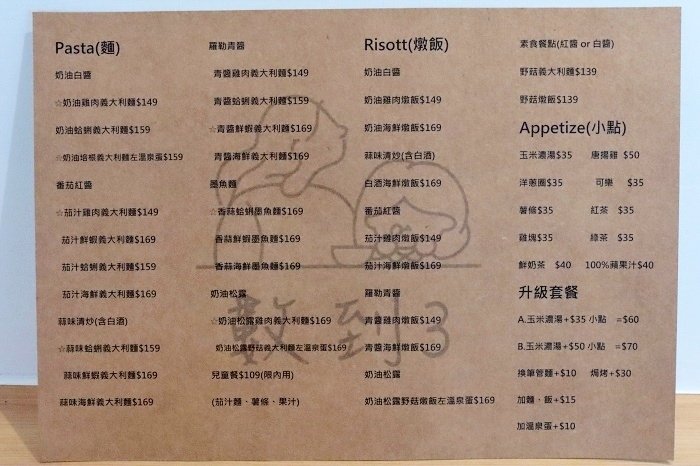 Pasta(麵)
奶油白醬
☆奶油雞肉義大利麵$149
奶油蛤蜊義大利麵$159
☆奶油培根義大利麵左溫泉蛋$159
番茄紅醬
☆茄汁雞肉義大利麵$149
茄汁鮮蝦義大利麵$169
茄汁蛤蜊義大利麵$159
茄汁海鮮義大利麵$169
蒜味清炒(含白酒)
☆蒜味蛤蜊義大利麵$159
蒜味鮮蝦義大利麵$169
蒜味海鮮義大利麵$169
羅勒青醬
青醬雞肉義大利麵$149
青醬蛤蜊義大利麵$159
☆青醬鮮蝦義大利麵$169
青醬海鮮義大利麵$169
墨魚麵
☆香蒜蛤蜊墨魚麵$169
香蒜鮮蝦墨魚麵$169
香蒜海鮮墨魚麵$169
奶油松露
☆奶油松露雞肉義大利麵$169
奶油松露野菇義大利麵左溫泉蛋$169
兒童餐$109(限內用)
(茄汁麵、薯條、果汁)
Risott(燉飯)
奶油白醬
奶油雞肉燉飯$149
奶油海鮮燉飯$169
蒜味清炒(含白酒)
白酒海鮮燉飯$169
番茄紅醬
茄汁雞肉燉飯$149
茄汁海鮮燉飯$169
羅勒青醬
青醬雞肉燉飯$149
青醬海鮮燉飯$169
奶油松露
奶油松露野菇燉飯左溫泉蛋$169
素食餐點(紅醬 or 白醬)
野菇義大利麵$139
野菇燉飯$139
Appetize(小點)
玉米濃湯$35 唐揚雞 $50
洋蔥圈$35 可樂 $35
薯條$35 紅茶 $35
雞塊$35 綠茶 $35
鮮奶茶 $40 100%蘋果汁$40
升級套餐
A.玉米濃湯+$35 小點 =$60
B.玉米濃湯+$50 小點 =$70
換筆管麵+$10 焗烤+$30
加麵、飯+$15
加溫泉蛋+$10
數到3